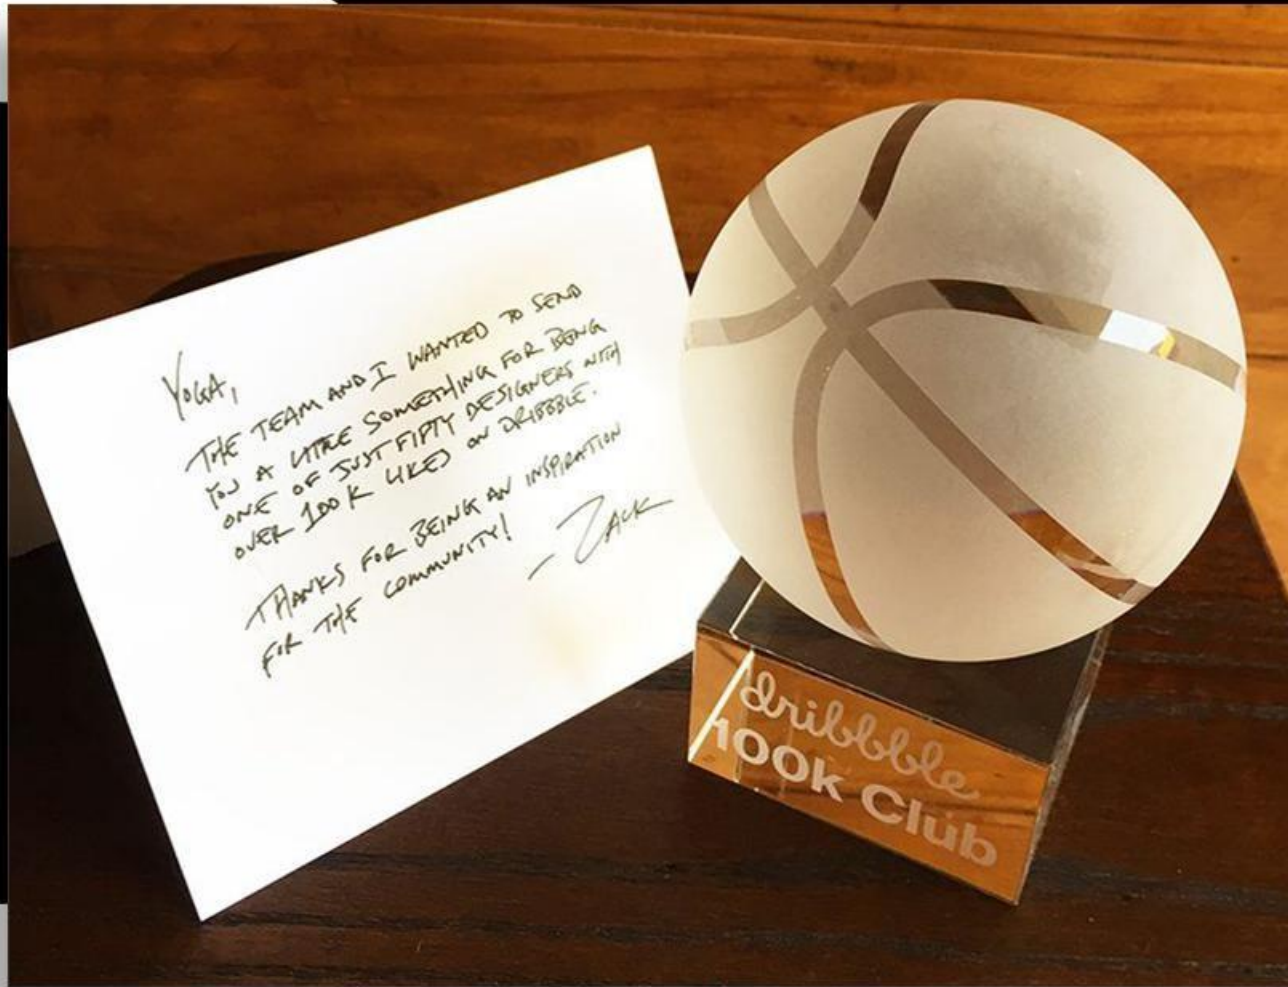 YOGA,
THE TEAM AND I WANTED TO SEND
YOU A LITTLE SOMETHING FOR BEING
ONE OF JUST FIFTY DESIGNERS WITH
OVER 100K LIKES ON DRIBBBLE.
THANKS FOR BEING AN INSPIRATION
FOR THE COMMUNITY!
-ZACK
dribbble
100k Club